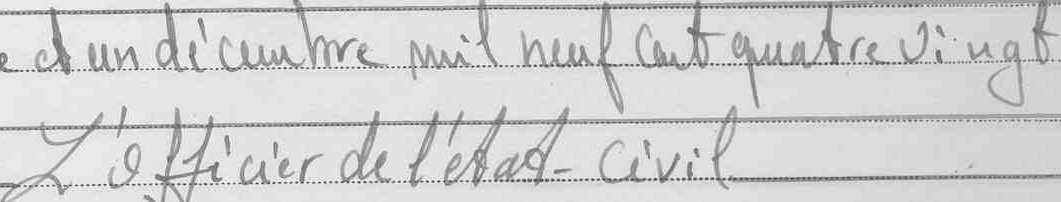 et un décembre mil neuf cent quatre vingt
L'officier de l'état-civil